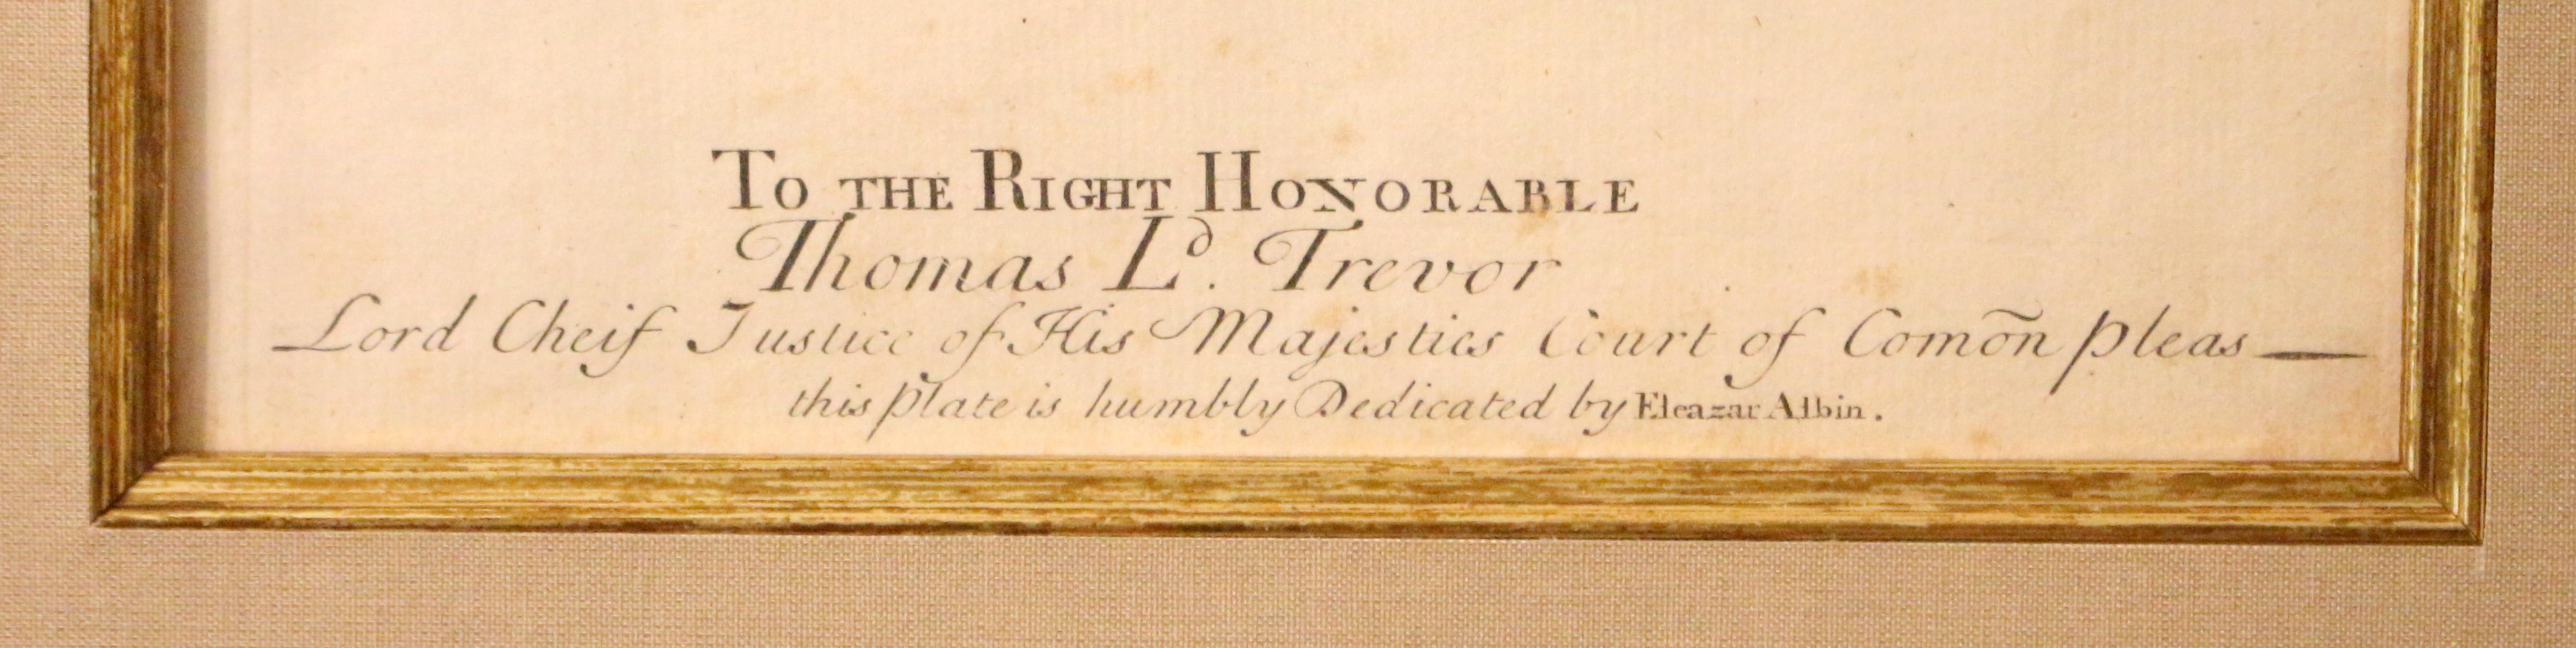 TO THE RIGHT HONORABLE
Thomas Ld. Trevor
Lord Cheif Justice of His Majesties Court of Comōn pleas—
this plate is humbly Dedicated by Eleazar Albin.